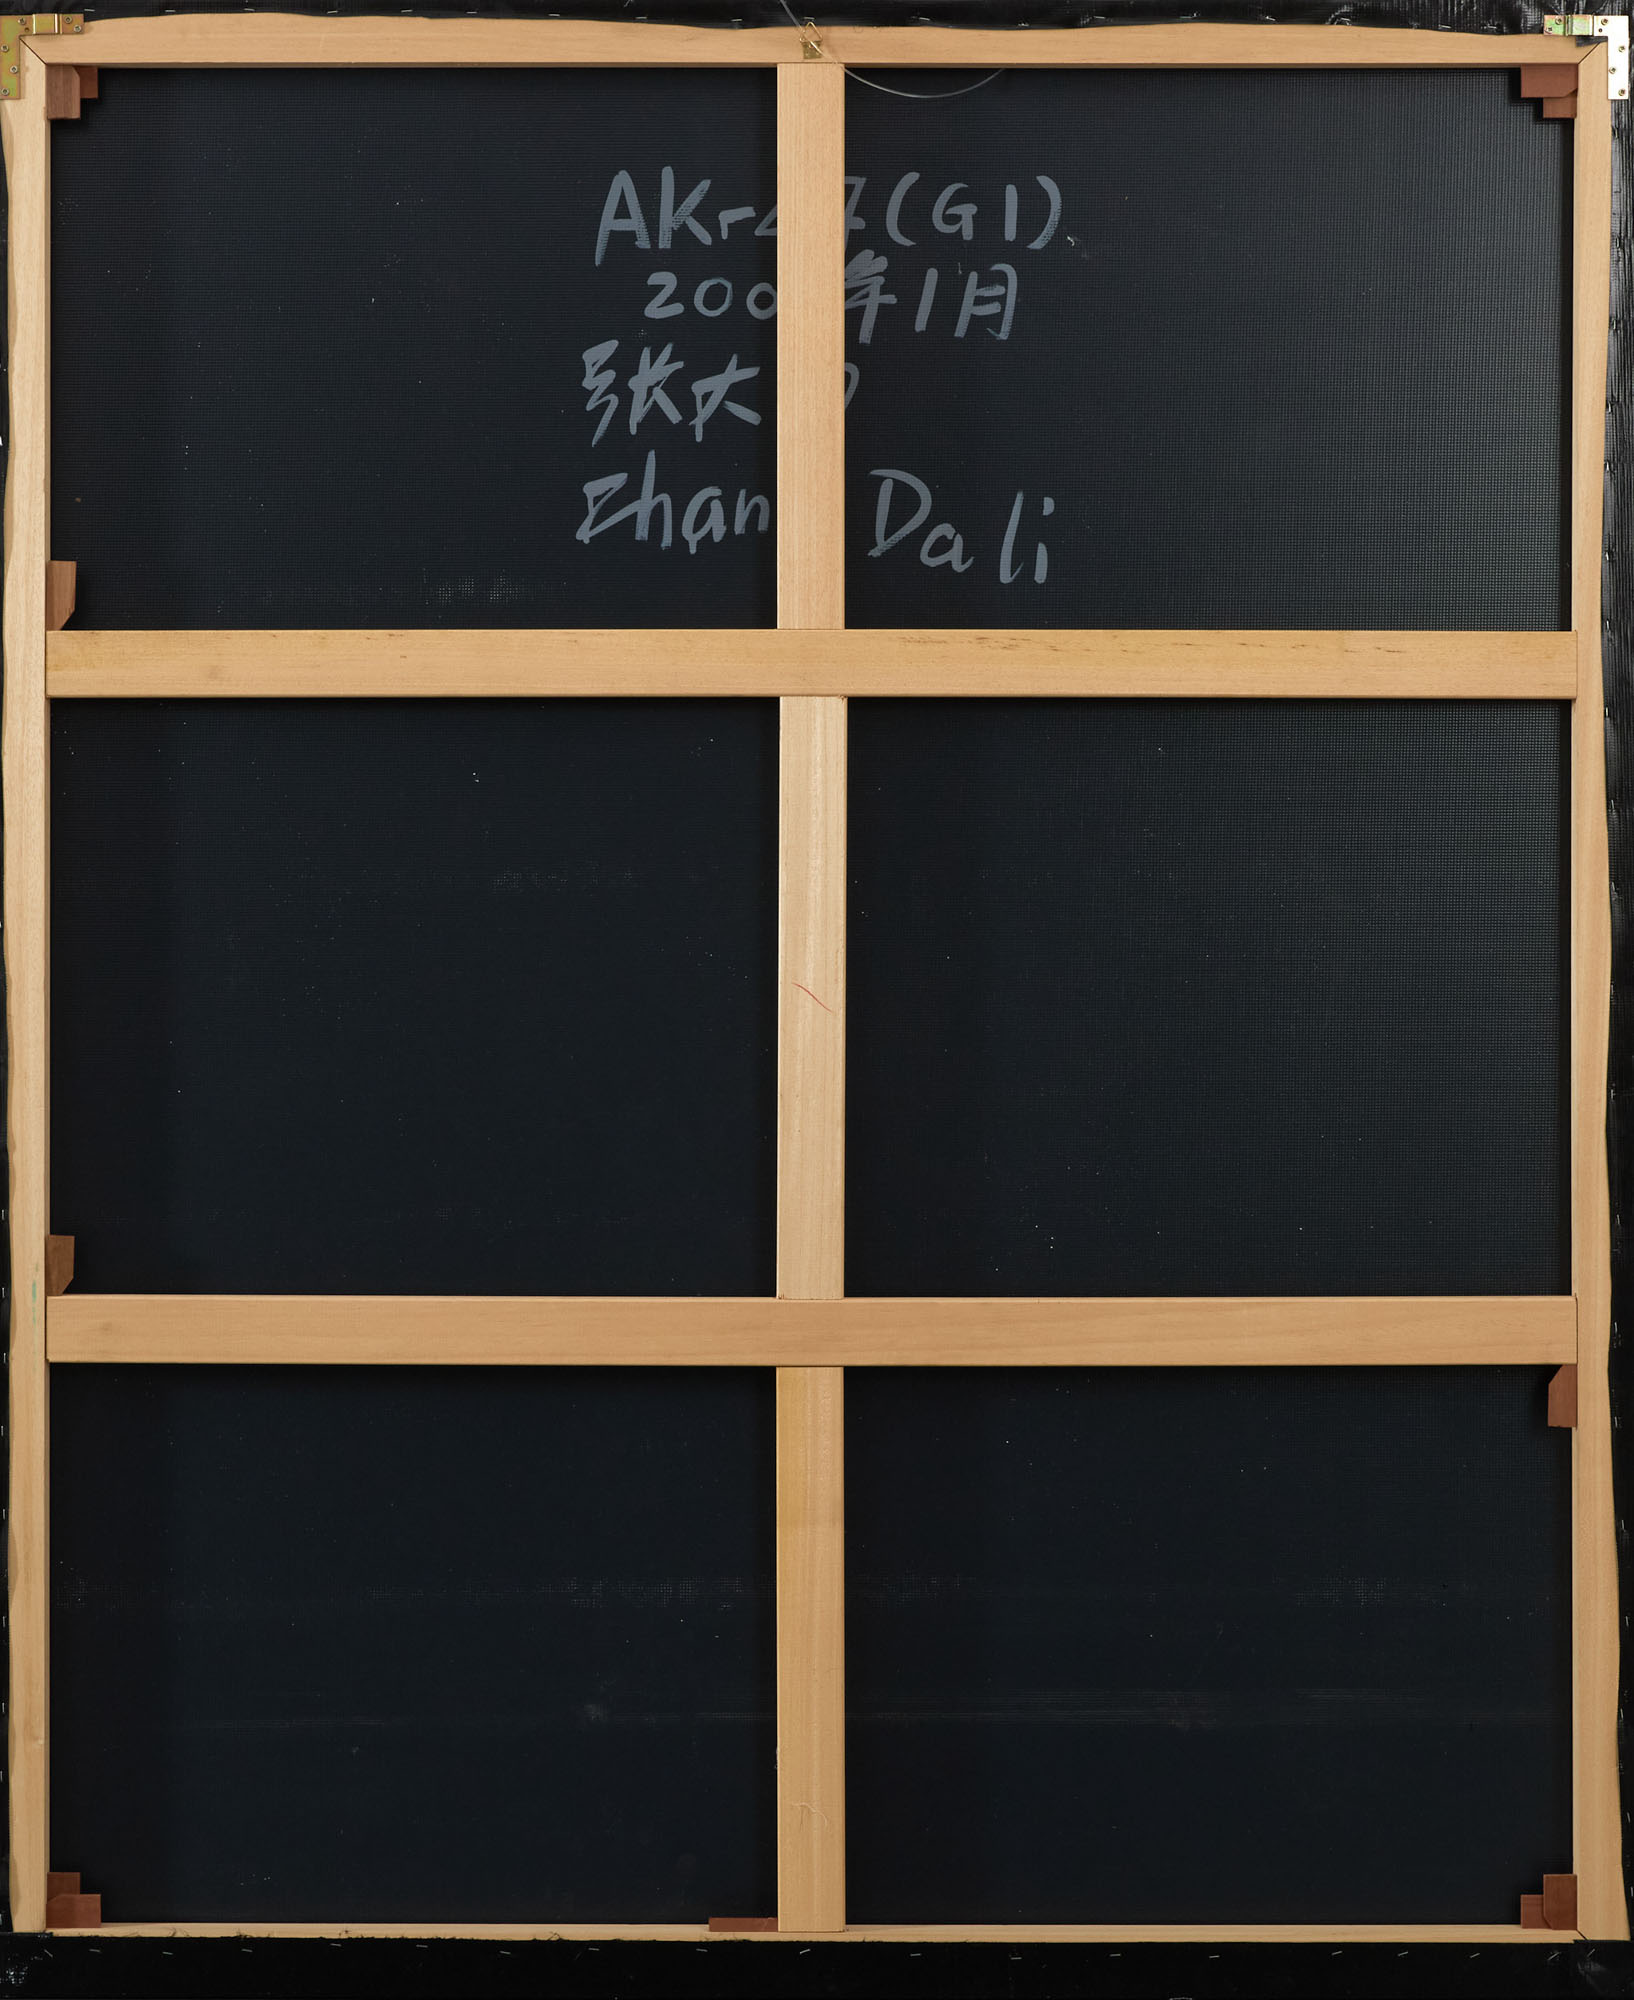 AK-47(G1)
200 年1月
张大力
Zhang Dali